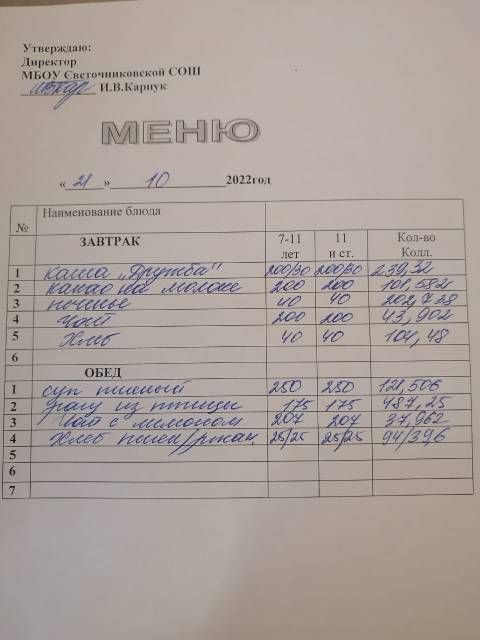 Утверждаю:
Директор
МБОУ Светочниковской СОШ
И.В.Карпук
МЕНЮ
« 21 » 10 2022год
№ Наименование блюда
ЗАВТРАК 7-11 лет 11 и ст. Кол-во Колл.
1 каша „Дружба" 200/30 200/30 239,32
2 какао на молоке 200 200 101,582
3 печенье 40 40 202,738
4 Чай 200 200 43,902
5 Хлеб 40 40 104,48
6
ОБЕД
1 суп 250 250 128,506
2 рагу из птицы 175 175 487,25
3 Чай с лимоном 207 207 37,962
4 Хлеб пшен/ржан. 25/25 25/25 94/396
5
6
7